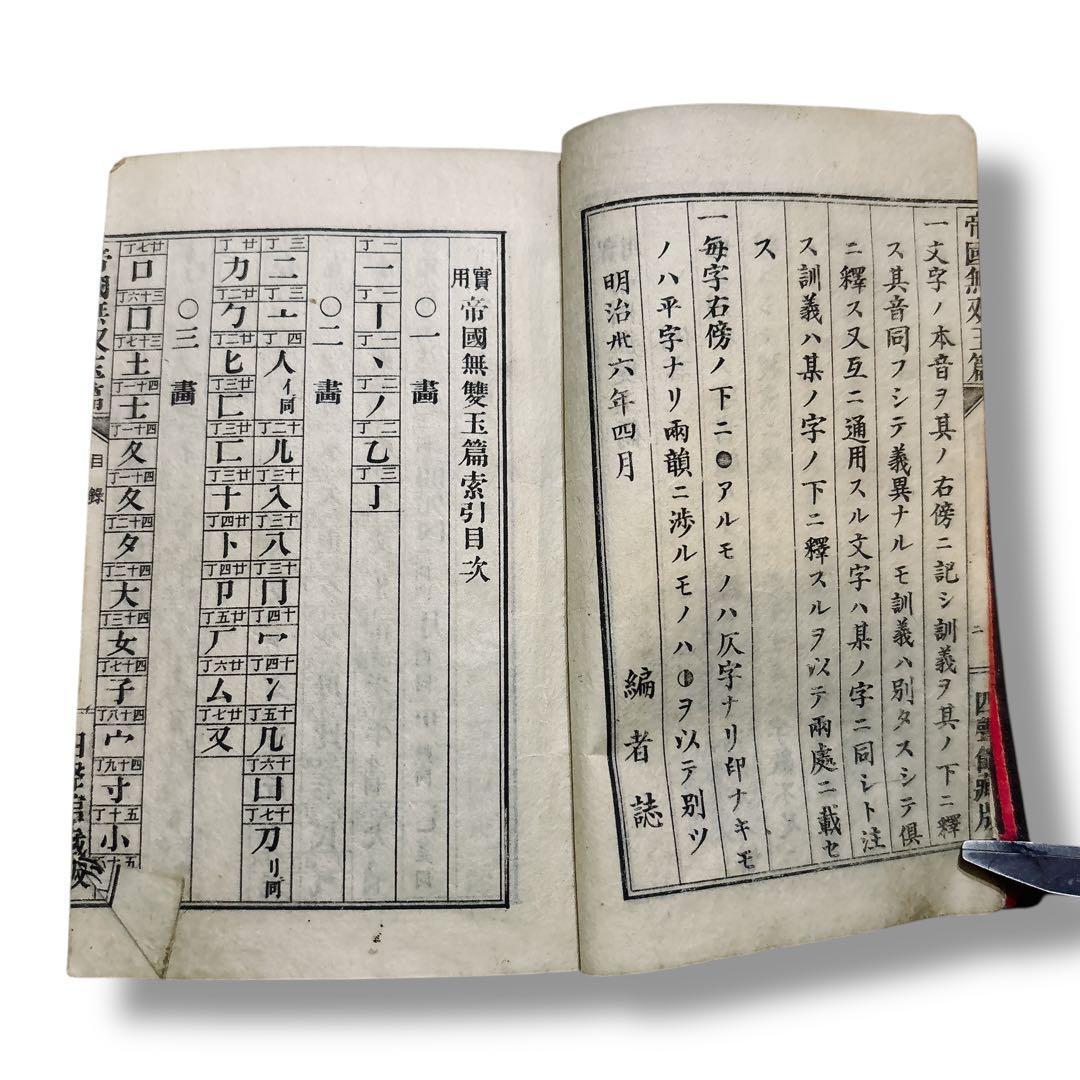 帝國無双玉篇
一文字ノ本音ヲ其ノ右傍ニ記シ訓義ヲ其ノ下ニ釋
ス其音同フシテ義異ナルモ訓義ハ別タスシテ俱
ニ釋ス又互ニ通用スル文字ハ某ノ字ニ同シト注
ス訓義ハ某ノ字ノ下ニ釋スルヲ以テ兩處ニ載セ
ス
一每字右傍ノ下ニ●アルモノハ仄字ナリ印ナキモ
ノハ平字ナリ兩韻ニ渉ルモノハ◐ヲ以テ別ツ
明治卅六年四月
編者誌
實用帝國無雙玉篇索引目次
〇一畫
一丁 一 一丁 丨 一丁 丶 二丁 丿 二丁 乙 三丁 亅
〇二畫
三丁 二 三丁 亠 四丁 人イ同 十二丁 儿 十三丁 入 十三丁 八 十三丁 冂 十四丁 冖 十四丁 冫 十五丁 几 十六丁 凵 十七丁 刀刂同
廿丁 力 廿二丁 勹 廿二丁 匕 廿三丁 匚 廿三丁 匸 廿三丁 十 廿四丁 卜 廿四丁 卩 廿五丁 厂 廿六丁 厶 廿七丁 又
〇三畫
廿七丁 口 三十六丁 囗 三十七丁 土 四十一丁 士 四十一丁 夂 四十一丁 夊 四十二丁 夕 四十二丁 大 四十三丁 女 四十七丁 子 四十八丁 宀 四十九丁 寸 五十丁 小
目錄